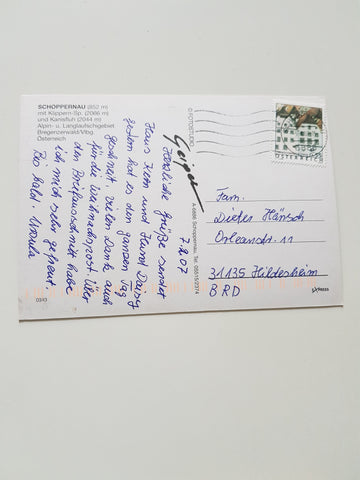 SCHOPPERNAU (852 m)
mit Köppern-Sp. (2066 m)
und Kanisfluh (2044 m)
Alpin- u. Langlaufschigebiet
Bregenzerwald/Vlbg.
Österreich
© FOTOSTUDIO
Geiger
A-6886 Schoppernau, Tel. 05515/2374
7.2.07
Herzliche Grüße sendet
Haus Kern und Hund Daisy
Gestern hat es den ganzen Tag
geschneit. Vielen Dank auch
für die Weihnachtspost. Über
den Briefausschnitt habe
ich mich sehr gefreut.
Bis bald. Ursula
ÖSTERREICH
Fam.
Dieter Hänsch
Orleansstr. 11
31135 Hildesheim
BRD
03/43
EXPRESS